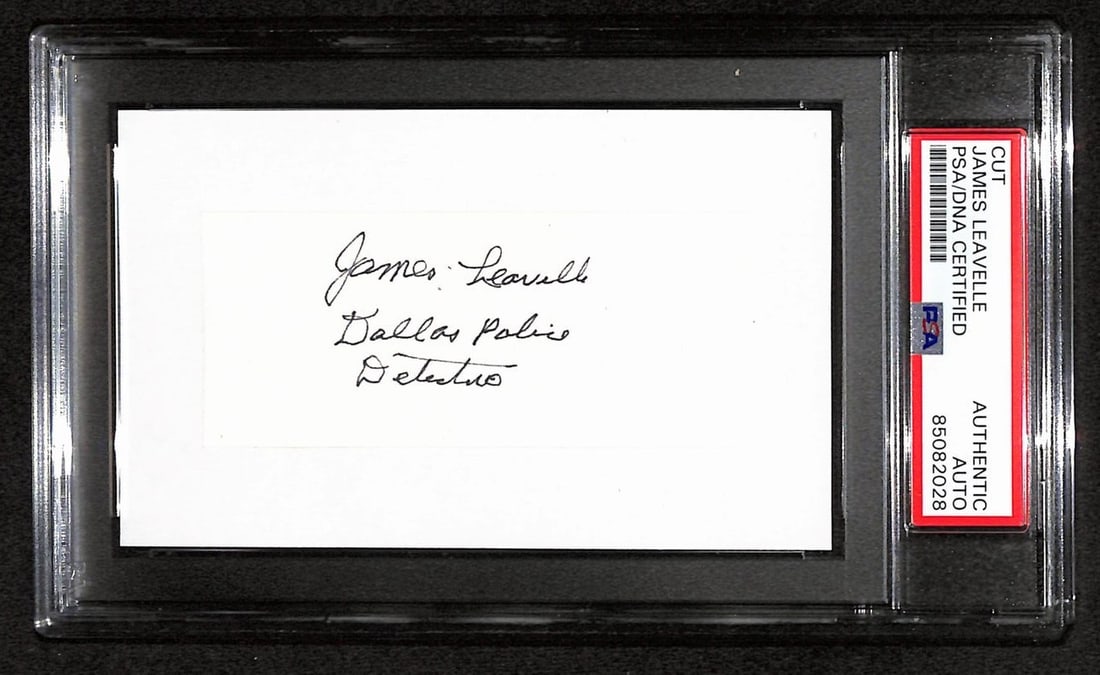 James Leavelle
Dallas Police
Detective
CUT
JAMES LEAVELLE
PSA/DNA CERTIFIED
PSA
AUTHENTIC
AUTO
85082028